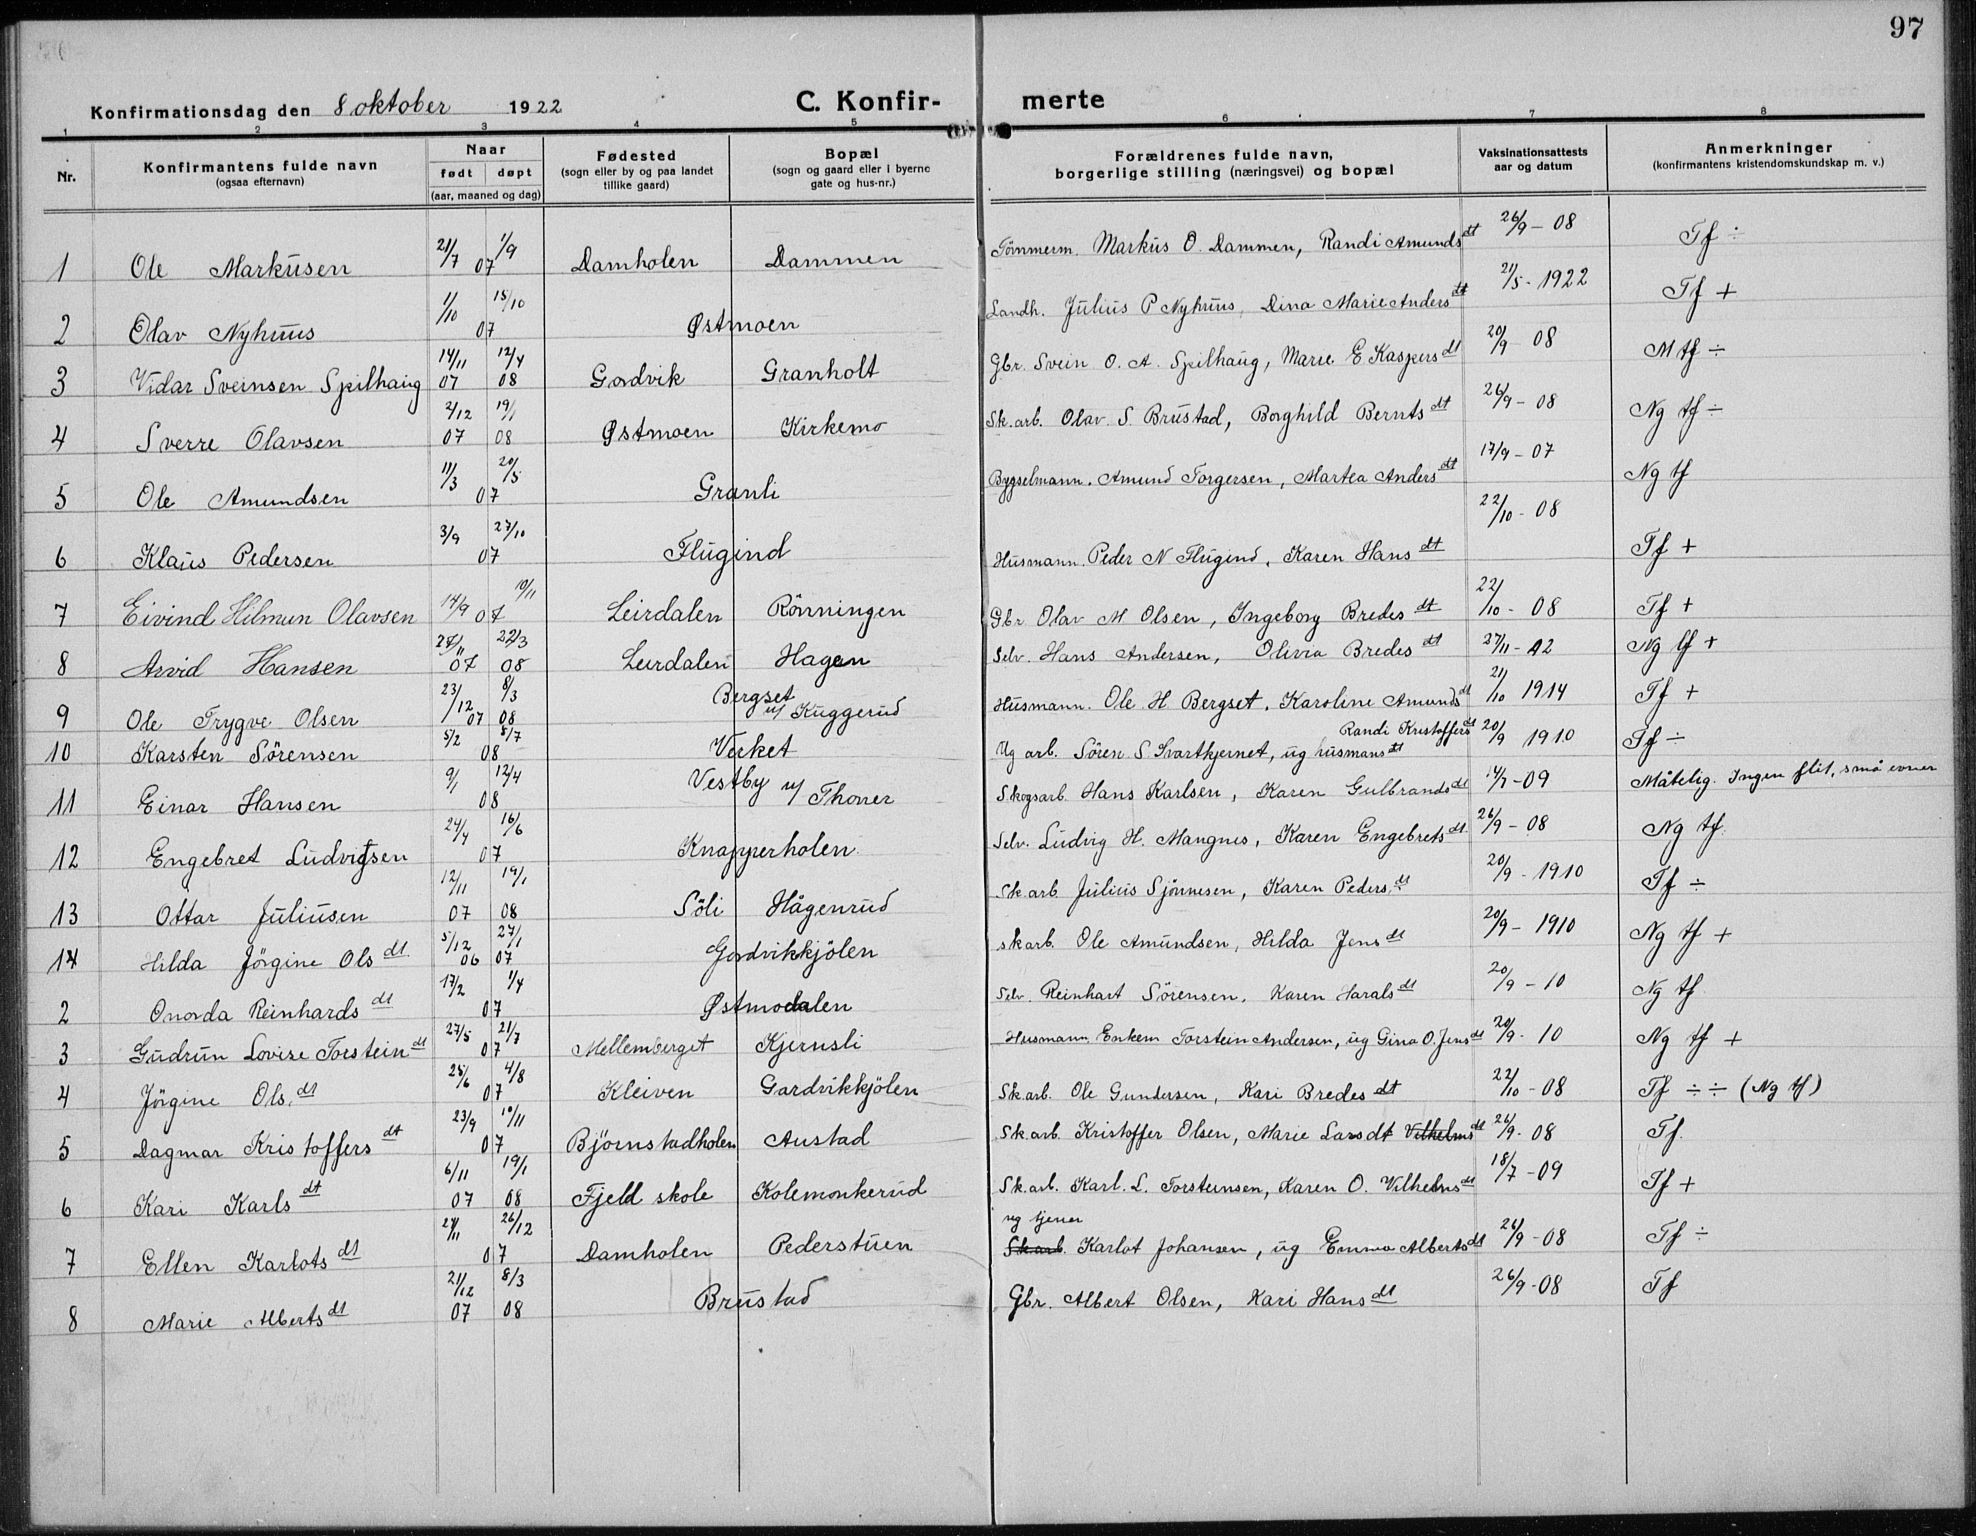 97
Konfirmationsdag den 8 oktober 1922 C. Konfir- merte
1 2 3 4 5 6 7 8
Nr. Konfirmantens fulde navn (ogsaa efternavn) Naar født døpt (aar, maaned og dag) Fødested (sogn eller by og paa landet tillike gaard) Bopæl (sogn og gaard eller i byerne gate og hus-nr.) Forældrenes fulde navn, borgerlige stilling (næringsvei) og bopæl Vaksinationsattests aar og datum Anmerkninger (konfirmantens kristendomskundskap m. v.)
1 Ole Markusen 21/7 1/9 07 Damholen Dammen Tömmerm. Markus O. Dammen, Randi Amundsdt 26/9 - 08 Tf ÷
2 Olav Nyhuus 1/10 15/10 07 Østmoen Landh. Julius P Nyhuus, Dina Marie Andersdt 21/5 - 1922 Tf +
3 Vidar Sveinsen Spilhaug 14/11 07 12/4 08 Gordvik Granholt Gbr. Svein O. A. Spilhaug, Marie E Kaspersdt 20/9 - 08 M tf ÷
4 Sverre Olavsen 2/12 07 19/1 08 Østmoen Kirkemo Sk.arb. Olav S. Brustad, Borghild Berntsdt 26/9 - 08 Ng tf ÷
5 Ole Amundsen 11/3 20/5 07 Granli Bygselmann. Amund Torgersen, Martea Andersdt 17/9 - 07 Ng tf
6 Klaus Pedersen 3/9 27/10 07 Flugind Husmann. Peder N Flugind, Karen Hansdt 22/10 - 08 Tf +
7 Eivind Hilmun Olavsen 14/9 10/11 07 Leirdalen Rönningen Gbr. Olav M Olsen, Ingeborg Bredesdt 22/10 - 08 Tf +
8 Arvid Hansen 07 22/3 08 Leirdalen Hagen Selv. Hans Andersen, Olivia Bredesdt 27/11 - 12 Ng tf +
9 Ole Trygve Olsen 23/12 07 8/3 08 Bergset u/ Kuggerud Husmann. Ole H Bergset, Karoline Amundsdt 21/10 1914 Tf +
10 Karsten Sörensen 5/2 5/7 08 Verket Ug arb. Sören S. Svartkjernet, ug husmansdt Randi Kristoffersdt 20/9 1910 Tf ÷
11 Einar Hansen 9/1 12/4 08 Vestby u/ Thorer Skogsarb. Hans Karlsen, Karen Gulbrandsdt 14/7 - 09 Måtelig. Ingen flit, små evner
12 Engebret Ludvigsen 24/4 16/6 07 Knapperholen Selv. Ludvig H. Mangnes, Karen Engebretsdt 26/9 - 08 Ng tf.
13 Ottar Juliusen 12/11 07 19/1 08 Söli Hågenrud Sk.arb. Julius Sjönnesen, Karen Pedersdt 20/9 - 1910 Tf ÷
14 Hilda Jörgine Olsdt 5/12 06 27/1 07 Gordvikkjölen skarb. Ole Amundsen, Hilda Jensdt 20/9 - 1910 Ng tf +
2 Onorda Reinhardsdt 17/2 1/4 07 Østmodalen Selv. Reinhart Sörensen, Karen Haralsdt 20/9 - 10 Ng tf.
3 Gudrun Lovise Torsteindt 27/5 21/7 07 Mellemberget Kjernsli Husmann. Enkem Torstein Andersen, ug Gina O. Jensdt 20/9 - 10 Ng tf +
4 Jörgine Olsdt 25/6 4/8 07 Kleiven Gardvikkjölen Sk.arb. Ole Gundersen, Kari Bredesdt 22/10 - 08 Tf ÷ ÷ (Ng tf)
5 Dagmar Kristoffersdt 23/9 10/11 07 Björnstadholen Austad Sk.arb. Kristoffer Olsen, Marie Larsdt Vilhelmsdt 26/9 - 08 Tf.
6 Kari Karlsdt 6/11 07 19/1 08 Fjeld skole Kolemonkerud Sk.arb. Karl. L. Torsteinsen, Karen O. Vilhelmsdt 18/7 - 09 Tf +
7 Ellen Karlotsdt 26/12 07 Damholen Pederstuen ug tjener Skarb. Karlot Johansen, ug Emma Albertsdt 26/9 - 08 Tf ÷
8 Marie Albertsdt 21/12 07 8/3 08 Brustad Gbr. Albert Olsen, Kari Hansdt 26/9 - 08 Tf